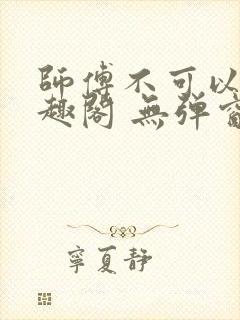 師傅不可以
趣閣 無彈窗
寧夏靜